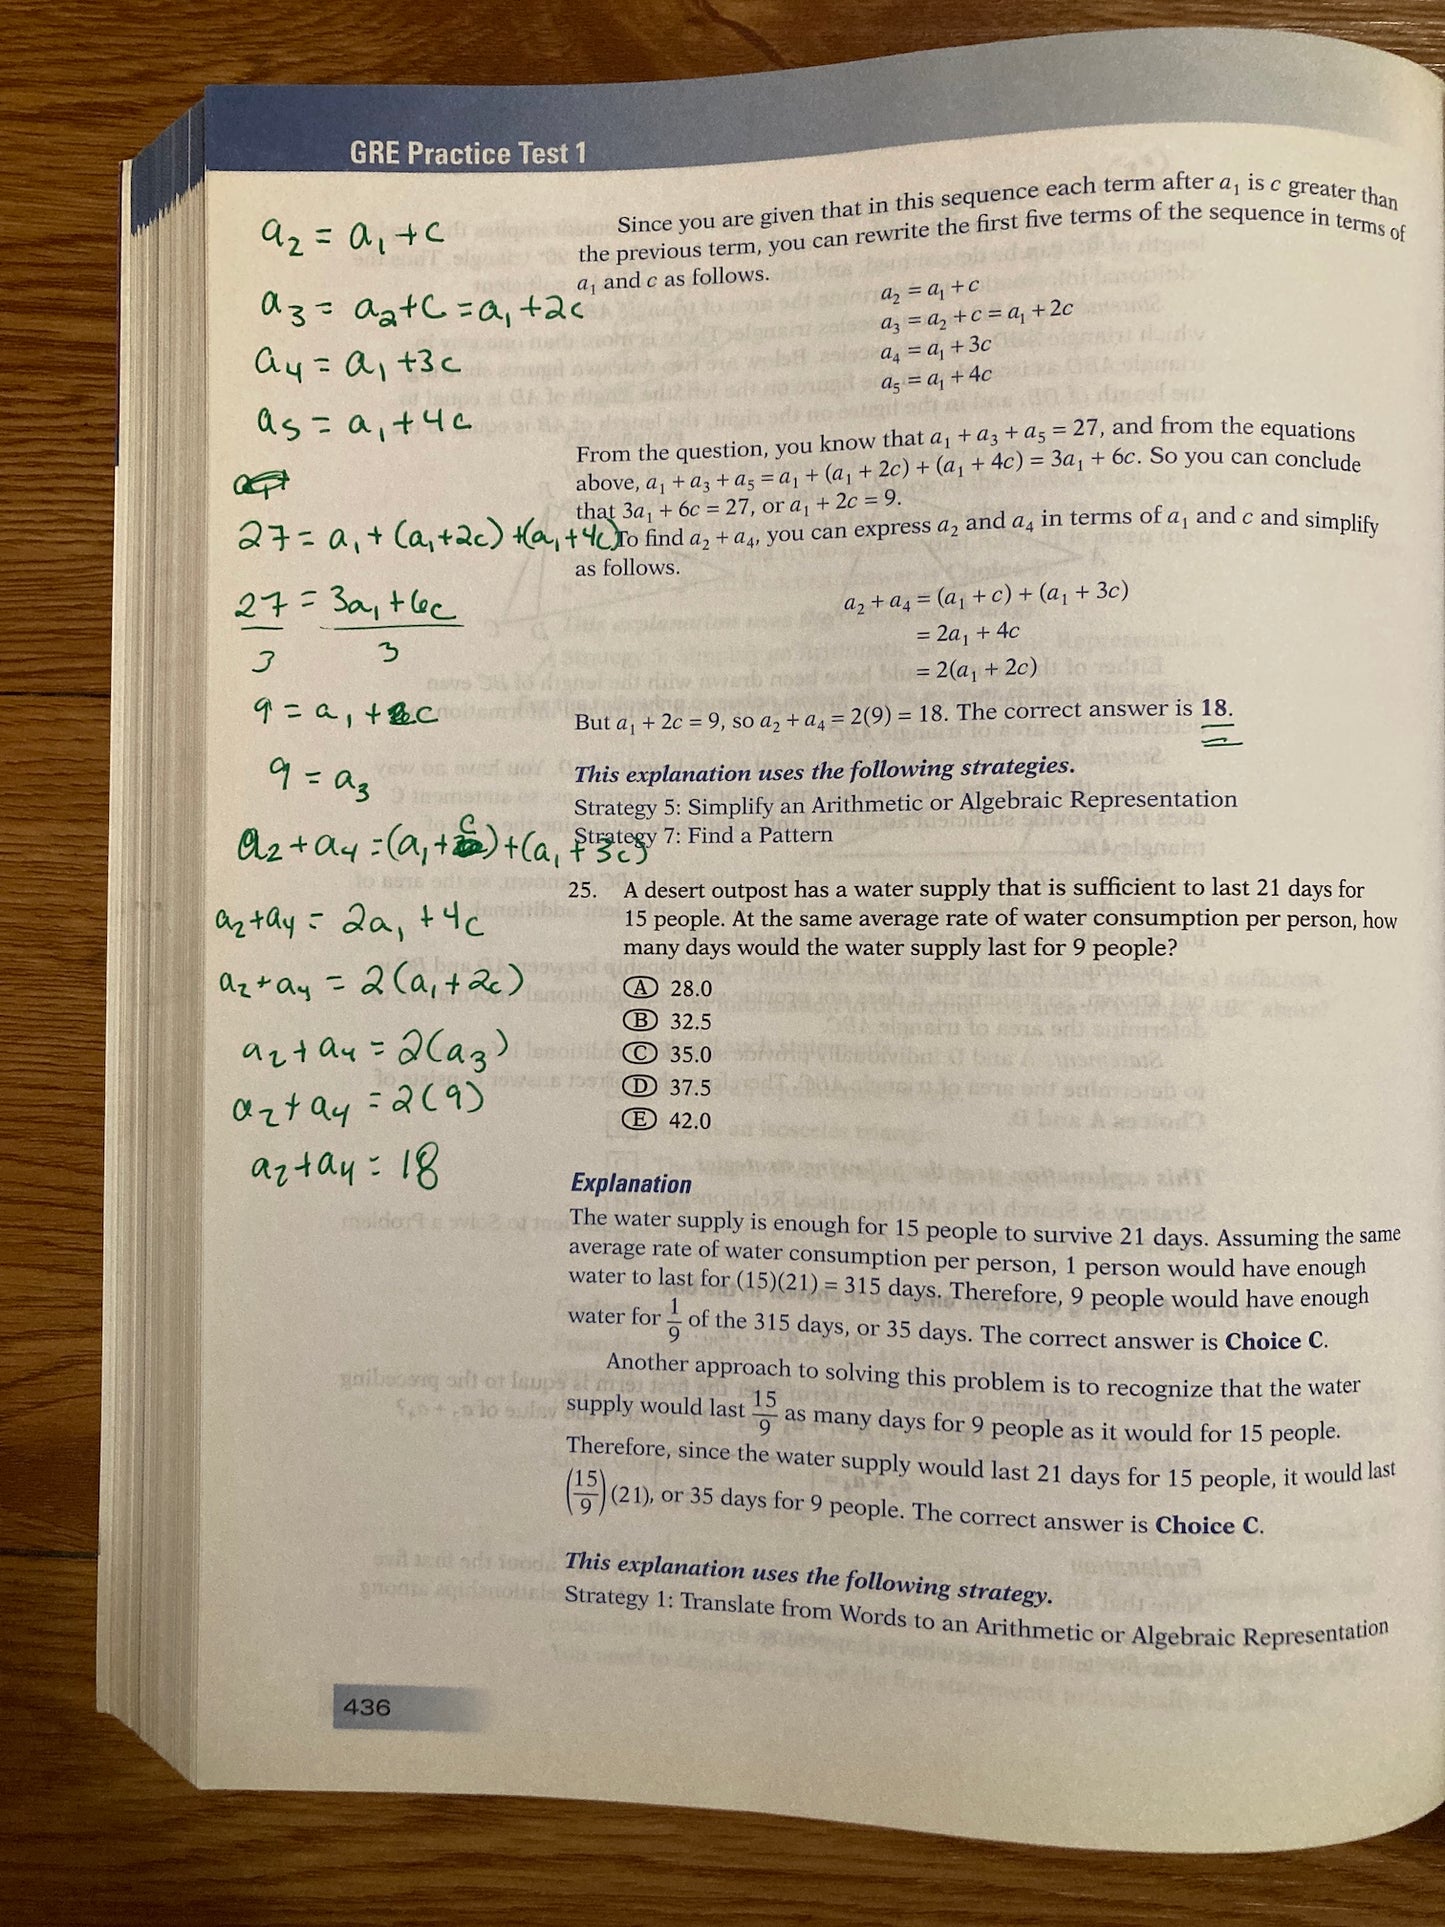 GRE Practice Test 1
a₂ = a₁ + c
a₃ = a₂ + c = a₁ + 2c
a₄ = a₁ + 3c
a₅ = a₁ + 4c
27 = a₁ + (a₁ + 2c) + (a₁ + 4c)
27 = 3a₁ + 6c
3 3
9 = a₁ + 2c
9 = a₃
a₂ + a₄ = (a₁ + c) + (a₁ + 3c)
a₂ + a₄ = 2a₁ + 4c
a₂ + a₄ = 2(a₁ + 2c)
a₂ + a₄ = 2(a₃)
a₂ + a₄ = 2(9)
a₂ + a₄ = 18
Since you are given that in this sequence each term after a₁ is c greater than
the previous term, you can rewrite the first five terms of the sequence in terms of
a₁ and c as follows.
a₂ = a₁ + c
a₃ = a₂ + c = a₁ + 2c
a₄ = a₁ + 3c
a₅ = a₁ + 4c
From the question, you know that a₁ + a₃ + a₅ = 27, and from the equations
above, a₁ + a₃ + a₅ = a₁ + (a₁ + 2c) + (a₁ + 4c) = 3a₁ + 6c. So you can conclude
that 3a₁ + 6c = 27, or a₁ + 2c = 9.
To find a₂ + a₄, you can express a₂ and a₄ in terms of a₁ and c and simplify
as follows.
a₂ + a₄ = (a₁ + c) + (a₁ + 3c)
= 2a₁ + 4c
= 2(a₁ + 2c)
But a₁ + 2c = 9, so a₂ + a₄ = 2(9) = 18. The correct answer is 18.
This explanation uses the following strategies.
Strategy 5: Simplify an Arithmetic or Algebraic Representation
Strategy 7: Find a Pattern
25. A desert outpost has a water supply that is sufficient to last 21 days for
15 people. At the same average rate of water consumption per person, how
many days would the water supply last for 9 people?
A 28.0
B 32.5
C 35.0
D 37.5
E 42.0
Explanation
The water supply is enough for 15 people to survive 21 days. Assuming the same
average rate of water consumption per person, 1 person would have enough
water to last for (15)(21) = 315 days. Therefore, 9 people would have enough
water for 1/9 of the 315 days, or 35 days. The correct answer is Choice C.
Another approach to solving this problem is to recognize that the water
supply would last 15/9 as many days for 9 people as it would for 15 people.
Therefore, since the water supply would last 21 days for 15 people, it would last
(15/9)(21), or 35 days for 9 people. The correct answer is Choice C.
This explanation uses the following strategy.
Strategy 1: Translate from Words to an Arithmetic or Algebraic Representation
436